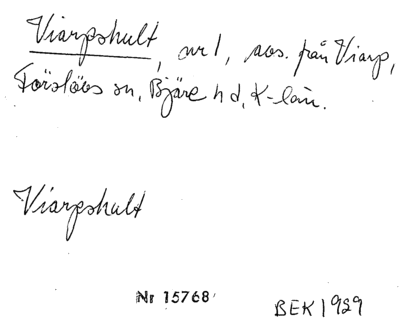 Viarpshult, nr 1, avs. från Viarp,
Förslövs sn, Bjäre hd, K-län.
Viarpshult
Nr 15768
BEK 1929